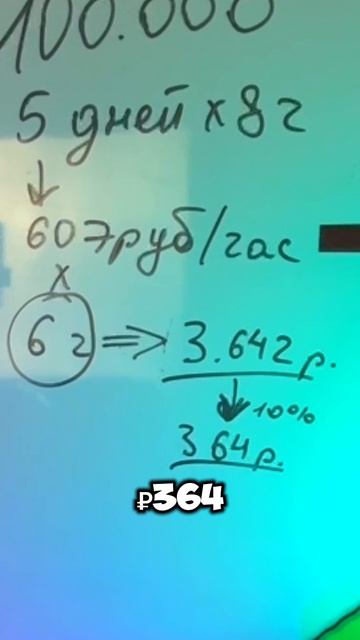 100.000
5 дней х 8 г
↓
607руб/час
х
6 г => 3.642р.
↓ 10%
364р.
₽364